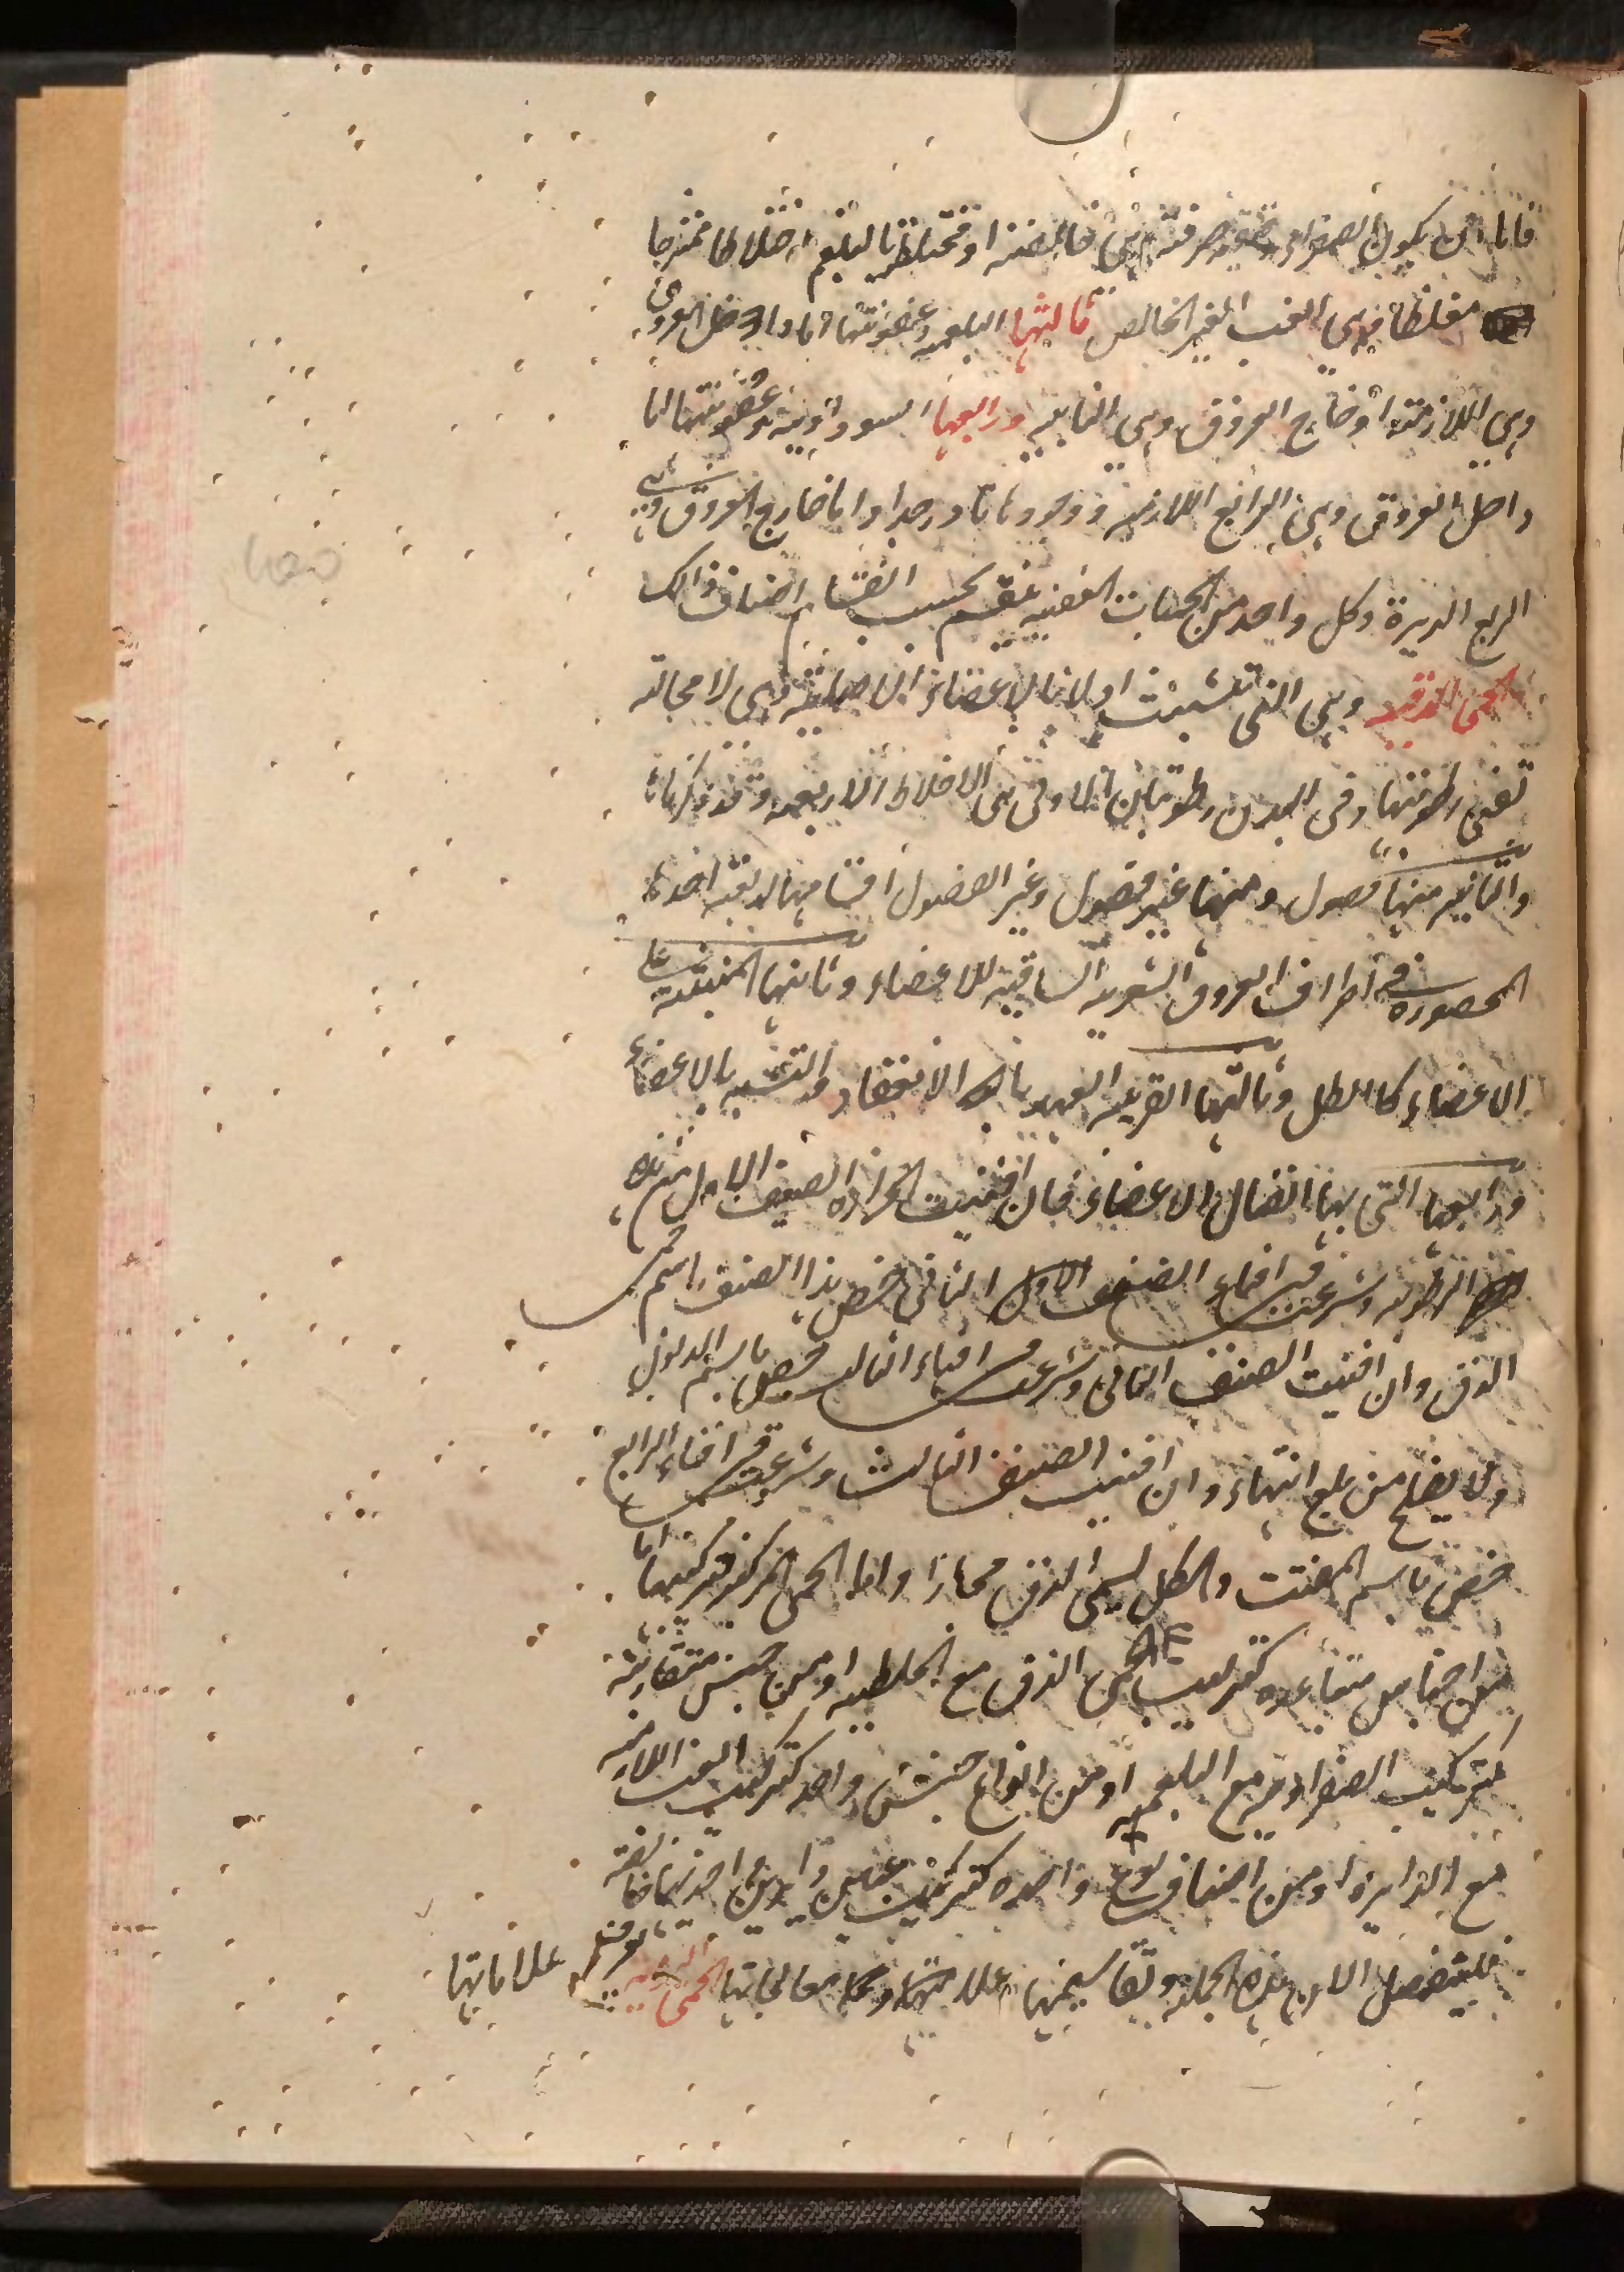 فاما ان يكون الصفراء صرفة وهى الخالصة او مختلطة بالبلغم اختلاطا ممتزجا
مغلظا وهى الغب الغير الخالص ثالثها البلغميه وعفونتها اما داخل العروق
وهى اللازمة او خارج العروق وهى النايبه ورابعها السوداويه وعفونتها اما
داخل العروق وهى الرابع اللازمه ووجودها نادر جدا واما خارج العروق وهى
الربع الديرة وكل واحد من الحميات العفنيه ينقسم بحسب انقسام اصناف ذالك
الحمى الدقيه وهى التى تشبثت اولا بالاعضاء الاصليه وهى لا محالة
تفنى رطوبتها وفى البدن رطوبتان الاولى هى الاخلاط الاربعه وقد ذكرناها
والثانيه منها فصول ومنها غير فصول وغير الفضول اقسامها اربعة احدها
المحصورة فى اطراف العروق الشعريه الساقيه للاعضاء وثانيها المنبثة على
الاعضاء كالطل وثالثها القريبه العهد بالانعقاد والتشبه بالاعضاء
ورابعها التى بها اتصال الاعضاء فان افنيت الحراره الصنف الاول من هذه
الرطوبه وشرعت فى افناء الصنف الثانى خص هذا الصنف باسم حمى
الدق وان افنيت الصنف الثانى وشرعت فى افناء الثالث خص باسم الدبول
ولا يفلح من بلغ انتهاء وان افنيت الصنف الثالث وشرعت فى افناء الرابع
خص باسم المفتت والكل يسمى الدق مجازا واما الحمى المركبة فتركيبها اما
من اجناس متباعده كتركيب الحمى الدق مع الخلطيه او من جنس متقاربة
كتركيب الصفراويه مع البلغميه او من انواع جنس واحد كتركيب الغب اللازمه
مع الدايرة او من اصناف نوع واحده كتركيب غبين دايرين احدهما خالصة
فلنفصل الان هذه الجمله وتقاسيمها علاماتها و معالجاتها الحمى اليوميه علاماتها